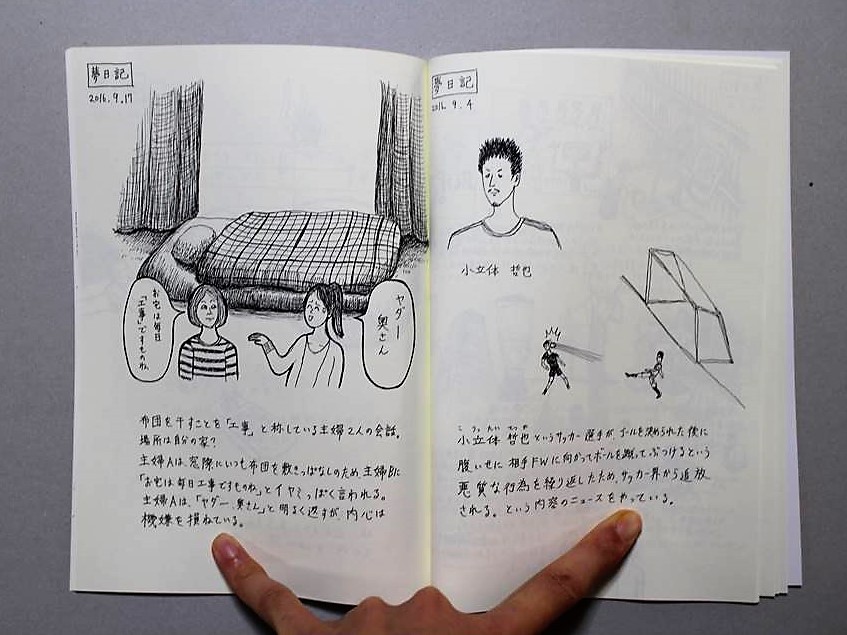 夢日記
2016.9.17
お宅は毎日
「工事」ですものね
ヤダー
奥さん
布団を干すことを「工事」と称している主婦2人の会話。
場所は自分の家?
主婦Aは、窓際にいつも布団を敷きっぱなしのため、主婦Bに
「お宅は毎日工事ですものね」とイヤミっぽく言われる。
主婦Aは、「ヤダー、奥さん」と明るく返すが、内心は
機嫌を損ねている。
夢日記
2016.9.4
小立体 哲也
こりったい てつや
小立体 哲也というサッカー選手が、ゴールを決められた後に
腹いせに相手FWに向かってボールを蹴ってぶつけるという
悪質な行為を繰り返したため、サッカー界から追放
される。という内容のニュースをやっている。